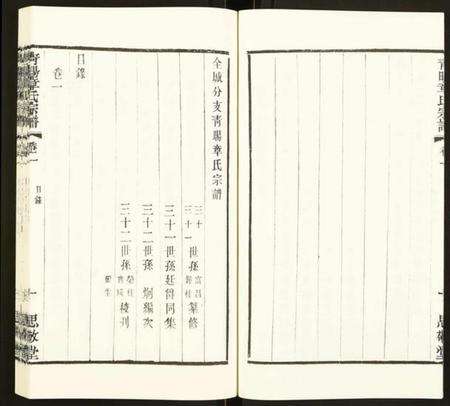 青陽章氏宗譜
卷一
思敬堂
全城分支青陽章氏宗譜
三十
三十一
世孫
富昌
纂修
三十一世孫廷得同集
三十二世孫 炯編次
三十二世孫
榮柱
校刊
目錄
卷一
青陽章氏宗譜
卷一
目錄
一
思敬堂